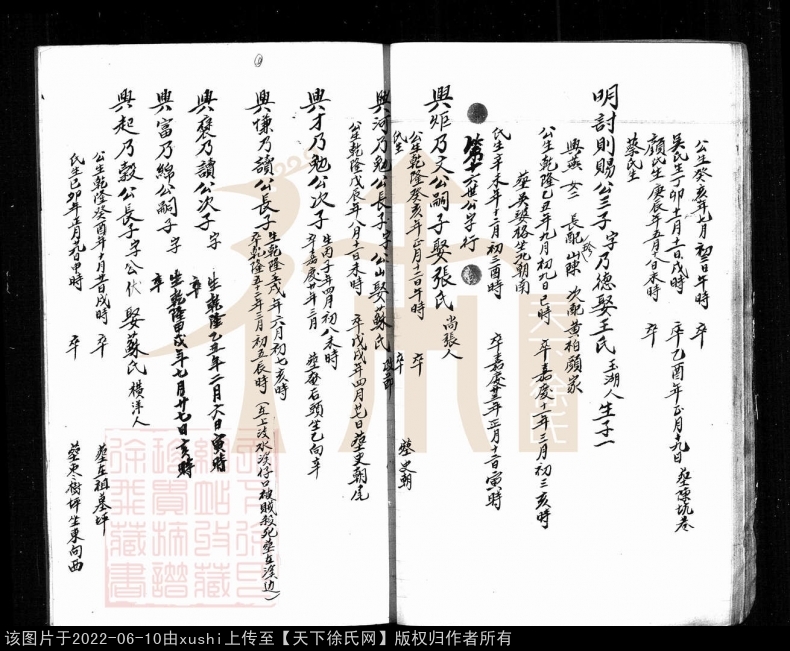 明討則賜公三子字乃德娶王氏玉湖人生子一
公生癸亥年九月初三日午時 卒
吴氏生丁卯十一月十一日戌時 卒乙酉年正月十九日葬陳坑巷
顏氏生庚辰年五月十八未時 卒
蔡氏生
興英 女三 長配 山陳 次配黃柏頭家
公生乾隆乙丑年九月初九日巳時 卒嘉慶十一年三月初三亥時
葬英 婆格坐北朝南
氏生辛未年十二月初三酉時 卒嘉慶廿三年正月十三日寅時
第十六世公字行
興炸乃文公嗣子娶張氏 尚張人
公生乾隆癸亥年正月十二日午時 卒 葬史朝
氏生 卒
興河乃勉公長子字公山娶蘇氏
公生乾隆戊辰年八月十日未時 卒戊戌年四月廿七日葬史朝尾
興才乃勉公次子 生丙子年四月初八未時
卒嘉慶廿年三月 葬 石頭坐乙向辛
興慊乃讀公長子 生乾隆壬戌年六月初七亥時
卒乾隆五十三年三月初五辰時(在上淩水 仔口被賊殺死葬在溪边)
興發乃讀公次子字 生乾隆乙丑年二月六日寅時
卒
興富乃綿公嗣子字 生乾隆甲戌年七月廿七日亥時
卒
興起乃穀公長子字公代 娶蘇氏 横洋人
公生乾隆癸酉年十月廿日戌時 卒 葬在祖墓坪
氏生己卯年正月九日申時 卒 葬東 坪坐東向西
天下徐氏
该图片于2022-06-10由xushi上传至【天下徐氏网】版权归作者所有